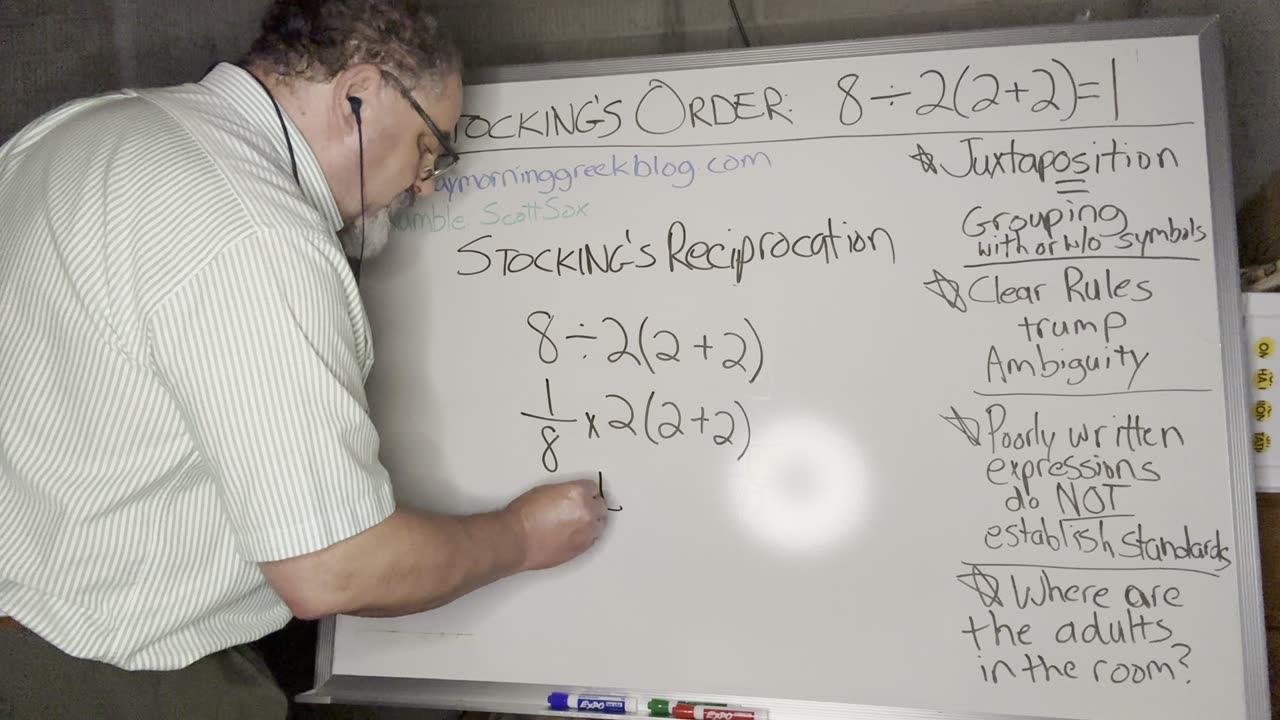 TOCKING'S ORDER: 8÷2(2+2)=1
aymorninggreekblog.com
umble ScottSox
STOCKING'S Reciprocation
8÷2(2+2)
1/8 x 2(2+2)
1
☆ Juxtaposition
=
Grouping
with or w/o symbols
☆ Clear Rules
trump
Ambiguity
☆ Poorly written
expressions
do NOT
establish standards
☆ Where are
the adults
in the room?
ON
EXPO
EXPO